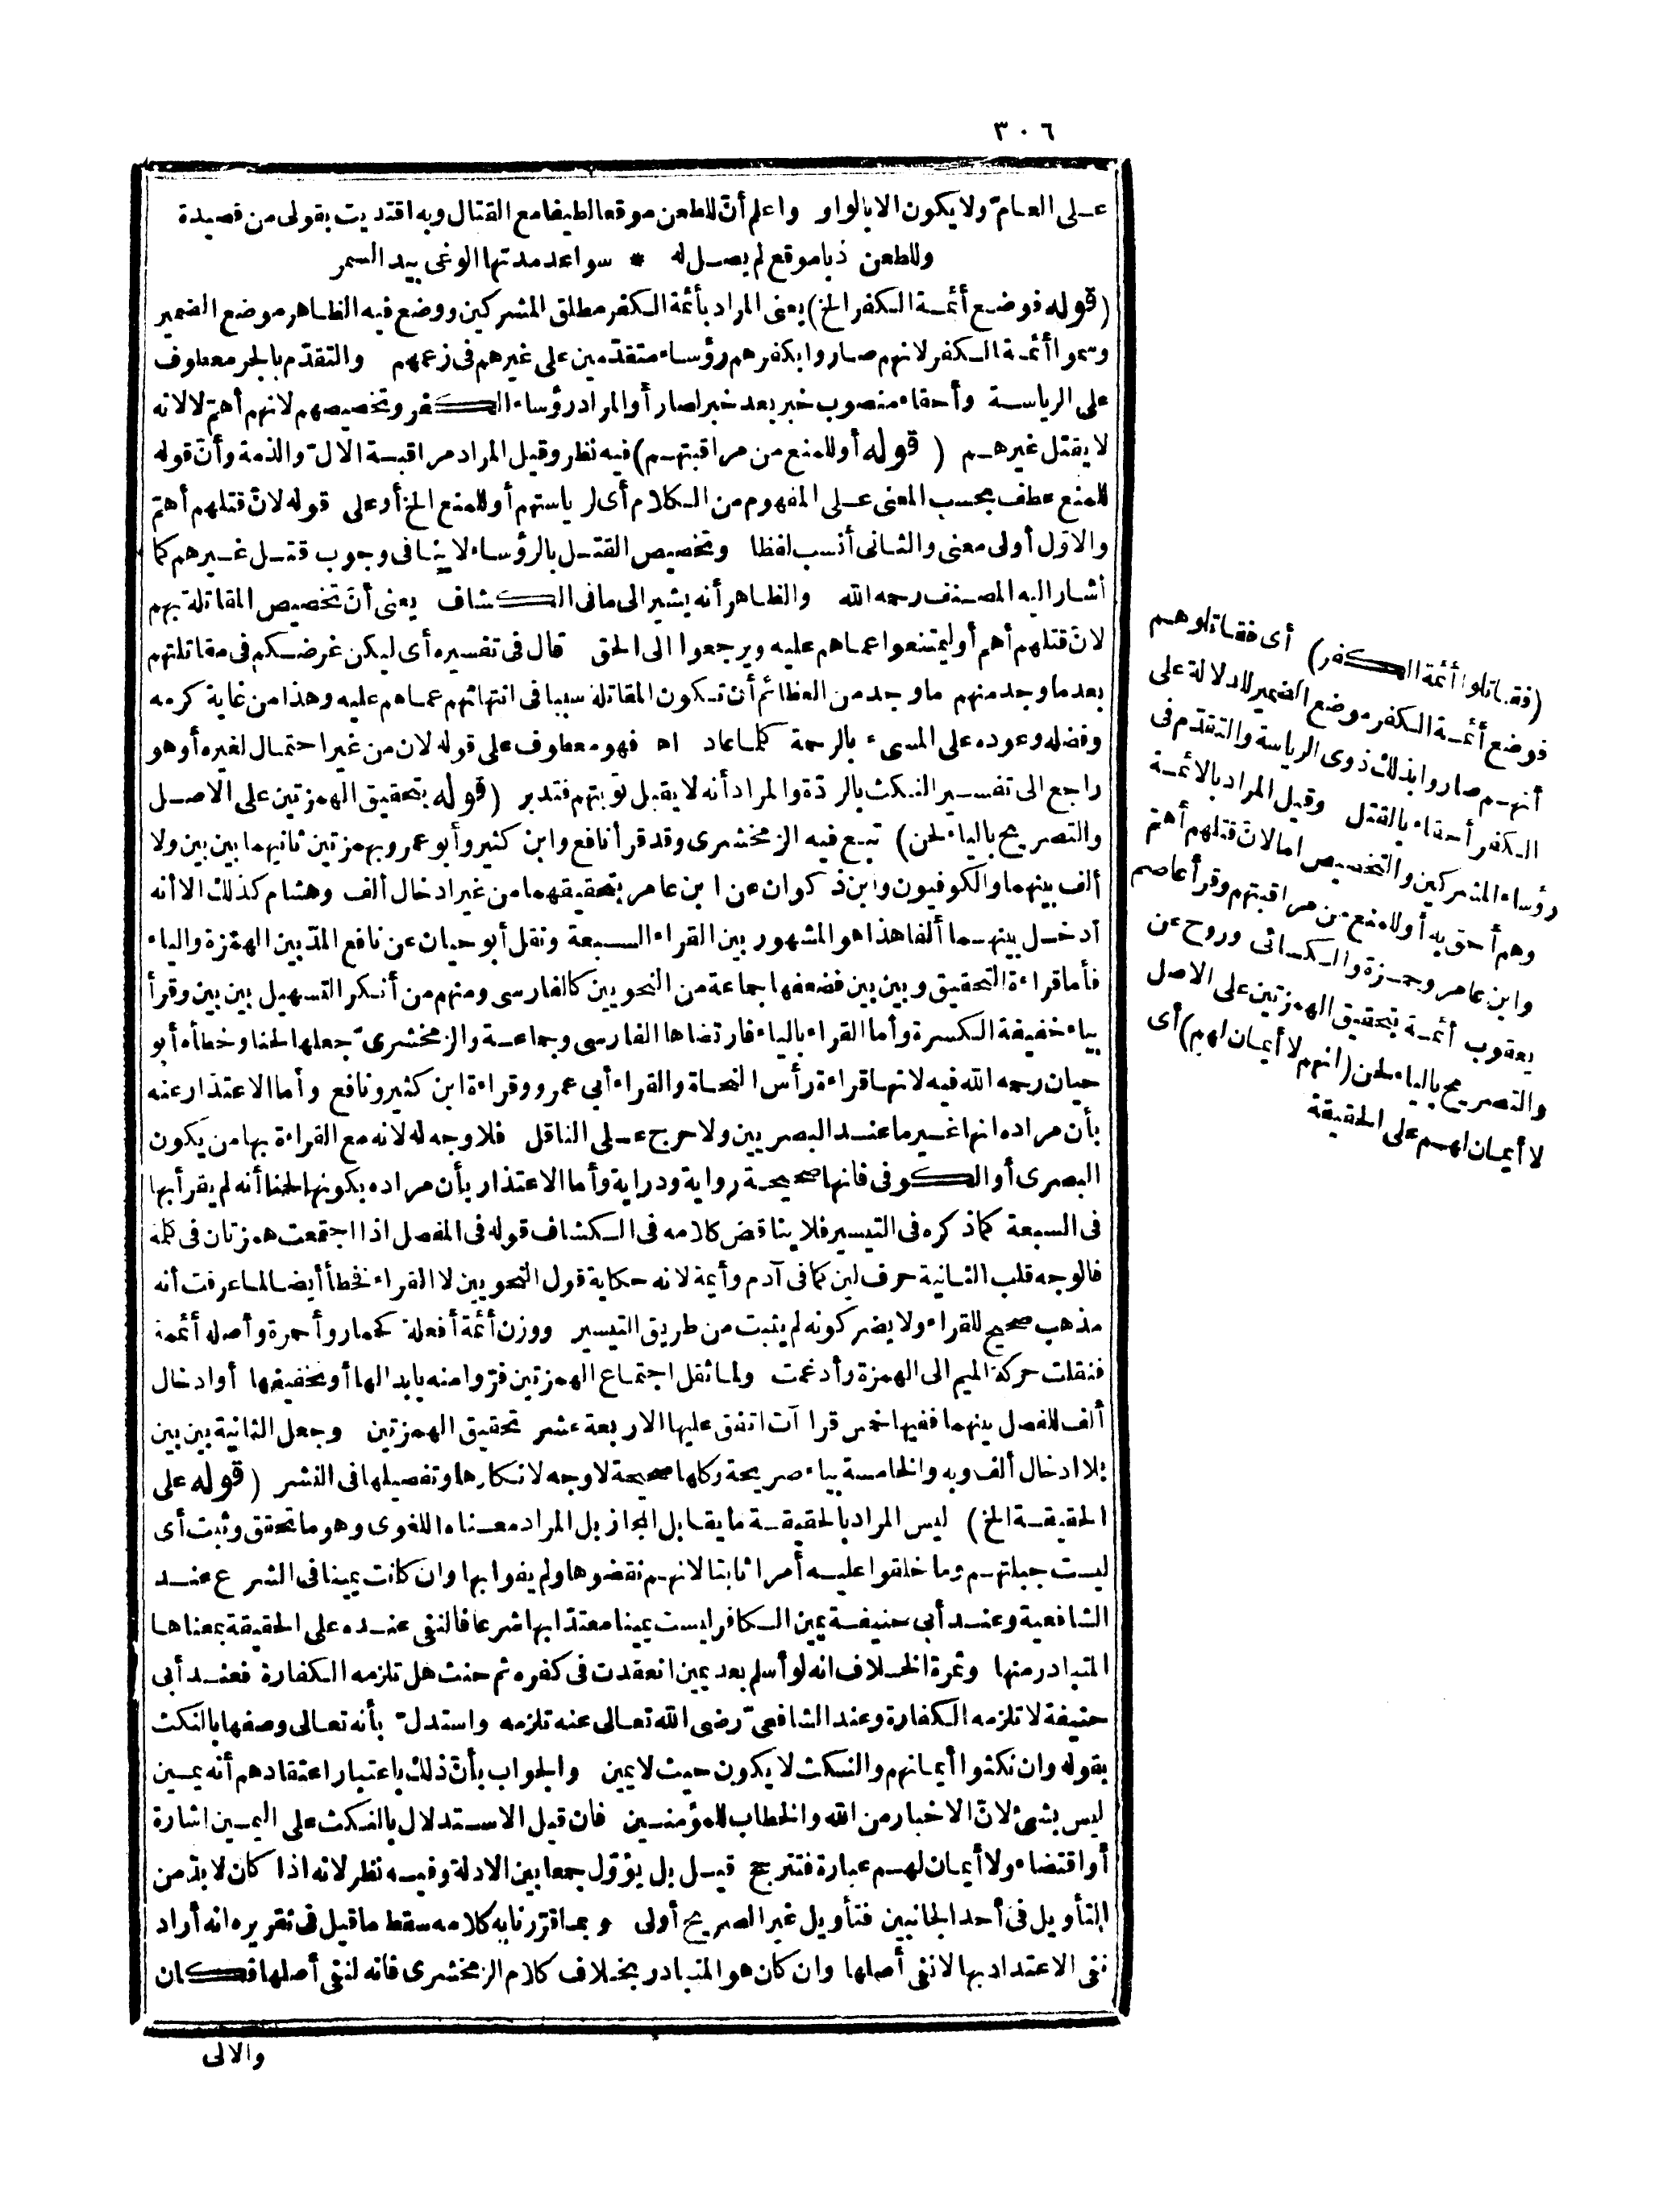 ٣٠٦
على العامّ ولا يكون الا بالواو واعلم أنّ للطعن موقعا لطيفا مع القتال وبه اقتديت بقولى من قصيدة
وللطعن ذبا موقع لم يصل له * سواعد مدتها الوغى بيد السمر
(قوله فوضع أئمة الكفر الخ) يعنى المراد بأئمة الكفر مطلق المشركين ووضع فيه الظاهر موضع الضمير
وسموا أئمة الكفر لانهم صاروا بكفرهم رؤساء متقدّمين على غيرهم فى زعمهم والتقدّم بالجر معطوف
على الرياسة وأحقاء منصوب خبر بعد خبر لصار أو المراد رؤساء الكفر وتخصيصهم لانهم أهمّ لا لانه
لا يقتل غيرهم (قوله أو للمنع من مراقبتهم) فيه نظر وقيل المراد مراقبة الالّ والذمة وأن قوله
للمنع عطف بحسب المعنى على المفهوم من الكلام أى لرياستهم أو للمنع الخ أو على قوله لانّ قتلهم أهمّ
والاوّل أولى معنى والثانى أنسب لفظا وتخصيص القتل بالرؤساء لا ينافى وجوب قتل غيرهم كما
أشار اليه المصنف رحمه الله والظاهر أنه يشير الى ما فى الكشاف يعنى أنّ تخصيص المقاتلة بهم
لانّ قتلهم أهم أو ليمتنعوا عما هم عليه ويرجعوا الى الحق قال فى تفسيره أى ليكن غرضكم فى مقاتلتهم
بعد ما وجد منهم ما وجد من العظائم أن تكون المقاتلة سببا فى انتهائهم عما هم عليه وهذا من غاية كرمه
وفضله وعوده على المسىء بالرحمة كلما عاد اه فهو معطوف على قوله لان من غير احتمال لغيره أو هو
راجع الى تفسير النكث بالردّة والمراد أنه لا يقبل توبتهم فتدبر (قوله بتحقيق الهمزتين على الاصل
والتصريح بالياء لحن) تبع فيه الزمخشرى وقد قرأ نافع وابن كثير وأبو عمرو بهمزتين ثانيهما بين بين ولا
ألف بينهما والكوفيون وابن ذكوان عن ابن عامر بتحقيقهما من غير ادخال ألف وهشام كذلك الا أنه
أدخل بينهما ألفا هذا هو المشهور بين القراء السبعة ونقل أبو حيان عن نافع المدّ بين الهمزة والياء
فأما قراءة التحقيق وبين بين فضعفها جماعة من النحويين كالفارسى ومنهم من أنكر التسهيل بين بين وقرأ
بياء خفيفة الكسرة وأما القراء بالياء فارتضاها الفارسى وجماعة والزمخشرىّ جعلها لحنا وخطأه أبو
حيان رحمه الله فيه لانها قراءة رأس النحاة والقراء أبى عمرو وقراءة ابن كثير ونافع وأما الاعتذار عنه
بأن مراده انها غير ما عند البصريين ولا حرج على الناقل فلا وجه له لانه مع القراءة بها من يكون
البصرى أو الكوفى فانها صحيحة رواية ودراية وأما الاعتذار بأن مراده بكونها لحنا أنه لم يقرأ بها
فى السبعة كما ذكره فى التيسير فلا يناقض كلامه فى الكشاف قوله فى المفصل اذا اجتمعت همزتان فى كلمة
فالوجه قلب الثانية حرف لين كما فى آدم وأيمة لانه حكاية قول النحويين لا القراء فخطأ أيضا لما عرفت أنه
مذهب صحيح للقراء ولا يضر كونه لم يثبت من طريق التيسير ووزن أئمة أفعلة كحمار وأحمرة وأصله أئممة
فنقلت حركة الميم الى الهمزة وأدغمت ولما ثقل اجتماع الهمزتين فرّوا منه بابدالها أو تخفيفها أو ادخال
ألف للفصل بينهما ففيها خمس قراآت اتفق عليها الاربعة عشر تحقيق الهمزتين وجعل الثانية بين بين
بلا ادخال ألف وبه والخامسة بياء صريحة وكلها صحيحة لا وجه لانكارها وتفصيلها فى النشر (قوله على
الحقيقة الخ) ليس المراد بالحقيقة ما يقابل المجاز بل المراد معناه اللغوى وهو ما تحقق وثبت أى
ليست جبلتهم وما خلقوا عليه أمرا ثابتا لانهم نقضوها ولم يفوا بها وان كانت يمينا فى الشرع عند
الشافعية وعند أبى حنيفة يمين الكافر ليست يمينا معتدّا بها شرعا فالنفى عنده على الحقيقة بمعناها
المتبادر منها وثمرة الخلاف انه لو أسلم بعد يمين انعقدت فى كفره ثم حنث هل تلزمه الكفارة فعند أبى
حنيفة لا تلزمه الكفارة وعند الشافعىّ رضى الله تعالى عنه تلزمه واستدلّ بأنه تعالى وصفها بالنكث
بقوله وان نكثوا أيمانهم والنكث لا يكون حيث لا يمين والجواب بأنّ ذلك باعتبار اعتقادهم أنه يمين
ليس بشئ لانّ الاخبار من الله والخطاب للمؤمنين فان قيل الاستدلال بالنكث على اليمين اشارة
أو اقتضاء ولا أيمان لهم عبارة فتترجح قيل بل يؤوّل جمعا بين الادلة وفيه نظر لانه اذا كان لا بدّ من
التأويل فى أحد الجانبين فتأويل غير الصريح أولى وبما قرّرنا به كلامه سقط ما قيل فى تقريره انه أراد
نفى الاعتداد بها لا نفى أصلها وان كان هو المتبادر بخلاف كلام الزمخشرى فانه لنفى أصلها فكان
والالى
(فقاتلوا أئمة الكفر) أى فقاتلوهم
فوضع أئمة الكفر موضع الضمير للدلالة على
أنهم صاروا بذلك ذوى الرياسة والتقدّم فى
الكفر أحقاء بالقتل وقيل المراد بالائمة
رؤساء المشركين والتخصيص اما لانّ قتلهم أهمّ
وهم أحق به أو للمنع من مراقبتهم وقرأ عاصم
وابن عامر وحمزة والكسائى وروح عن
يعقوب أئمة بتحقيق الهمزتين على الاصل
والتصريح بالياء لحن (انهم لا أيمان لهم) أى
لا أيمان لهم على الحقيقة